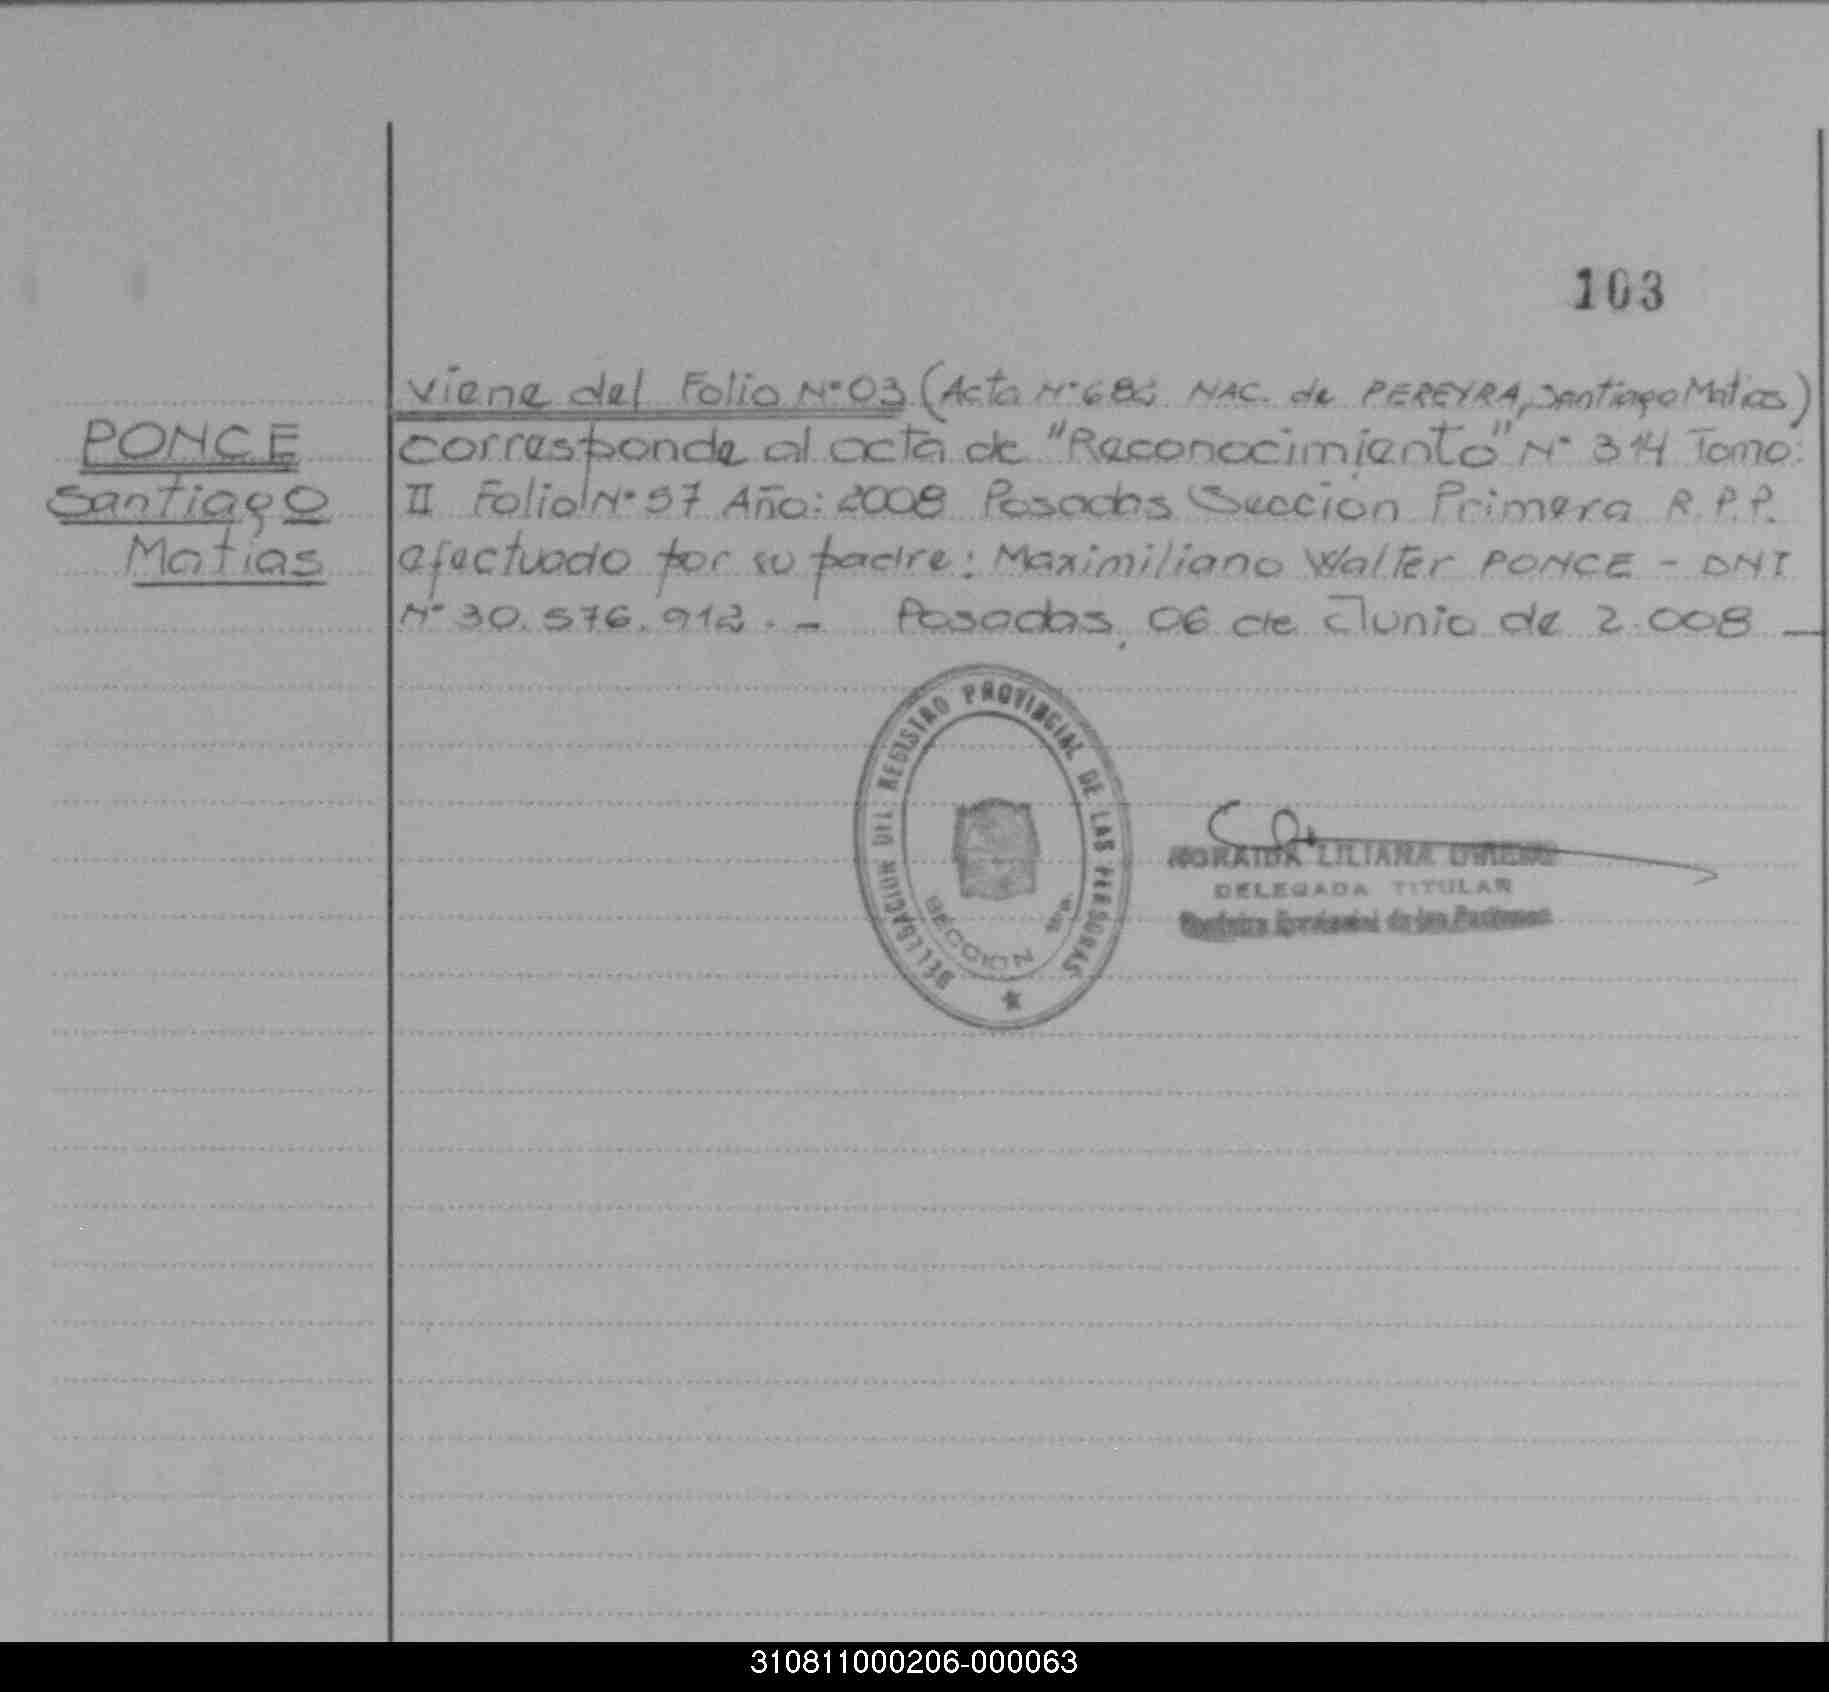 103
viene del Folio N° 03 (Acta N° 686 NAC. de PEREYRA, Santiago Matias)
PONCE
Santiago
Matias
corresponde al acta de "Reconocimiento" N° 314 Tomo:
II Folio N° 57 Año: 2008 Posadas Sección Primera R.P.P.
efectuado por su padre: Maximiliano Walter PONCE - DNI
N° 30.576.912. - Posadas, 06 de Junio de 2.008 -
DELEGACION DEL REGISTRO PROVINCIAL DE LAS PERSONAS
SECCION 1ra.
LILIANA
DELEGADA TITULAR
Provincial de las Personas
310811000206-000063